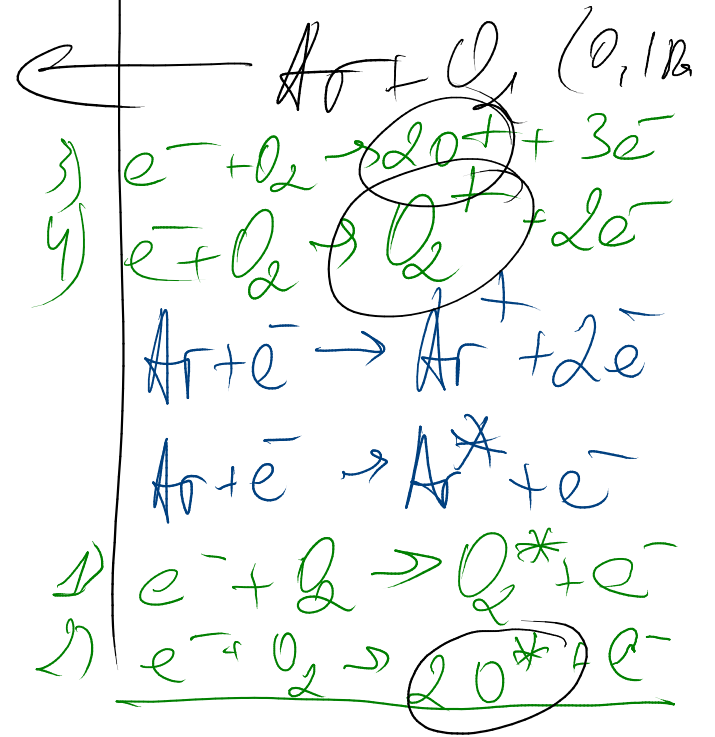 Ar + O₂ (0,1 Па
3) e⁻ + O₂ → 2O⁺ + 3e⁻
4) e⁻ + O₂ → O₂⁺ + 2e⁻
Ar + e⁻ → Ar⁺ + 2e⁻
Ar + e⁻ → Ar* + e⁻
1) e⁻ + O₂ → O₂* + e⁻
2) e⁻ + O₂ → 2O* + e⁻